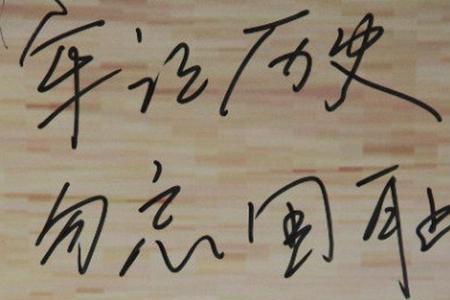 牢记历史
勿忘国耻